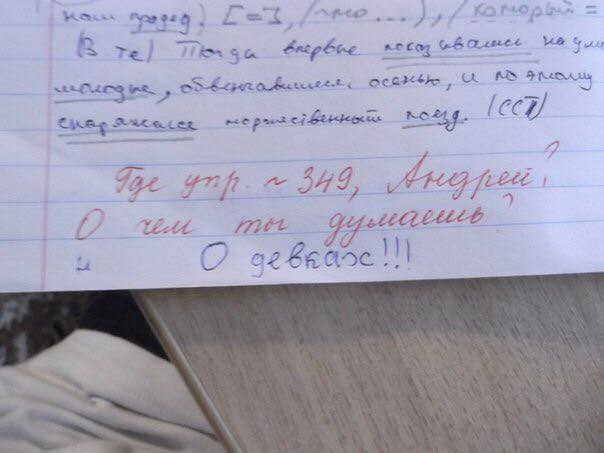 наш прадед, [=], (что...), (который =
(В те) Тогда впервые показывались на ули
молодые, обвенчавшиеся осенью, и по этому
снаряжался торжественный поезд. (ССП)
Где упр. ~ 349, Андрей?
О чем ты думаешь?
О девках!!!